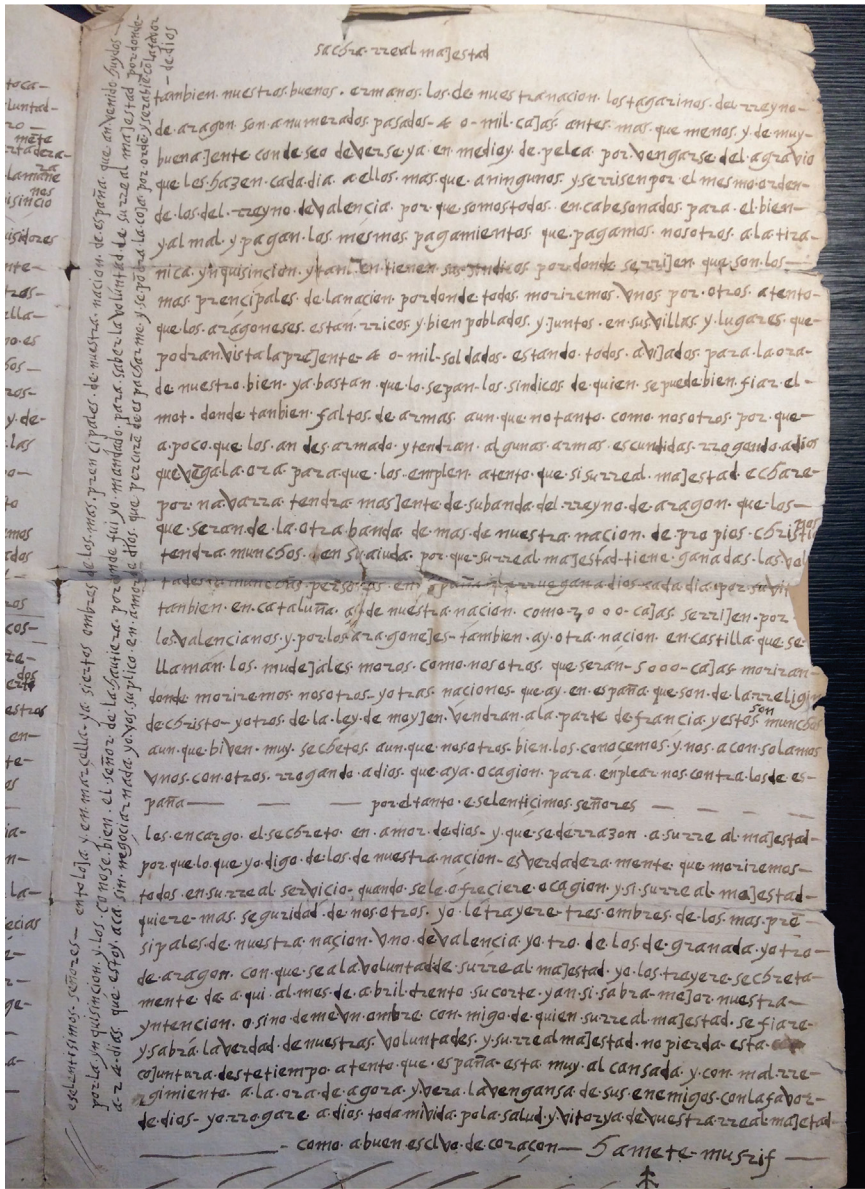 sacbra rreal maJestad
tambien nuestros buenos ermanos los de nuestra nacion los tagarinos del rreyno-
de aragon son a numerados pasados 4 0 mil caJas antes mas que menos y de muy-
buena Jente con deseo de verse ya en medio y de pelea por vengarse del agravio
que les hazen cada dia a ellos mas que a ningunos y serrisen por el mesmo orden-
de los del rreyno de valencia por que somos todos encabesonados para el bien-
y al mal y pagan los mesmos pagamientos que pagamos nosotros a la tira-
nica ynquisincion y tienen sus sindicos por donde serriJen que son los-
mas prencipales de la nacion por donde todos moriremos vnos por otros atento-
que los aragoneses estan rricos y bien poblados y Juntos en sus villas y lugares que-
podran vista la preJente 4 0 mil soldados estando todos aviJados para la ora-
de nuestro bien ya bastan que lo sepan los sindicos de quien se puede bien fiar el-
mot donde tanbien faltos de armas aun que no tanto como nosotros por que-
a poco que los an desarmado y tendran algunas armas escundidas rrogando a dios
que vẽga la ora para que los emplen atento que si su rreal maJestad echare-
por navarra tendra mas Jente de su banda del rreyno de aragon que los-
que seran de la otra banda de mas de nuestra nacion de propios
tendra munchos en su aiuda por que su rreal maJestad tiene ganadas las vol
munchas personas en españa rruegan a dios cada dia por su
tanbien en cataluña de nuestra nacion como 3000 caJas serriJen por-
los valencianos y por los aragoneJes tambien ay otra nacion en castilla que se-
llaman los mudeJales moros como nosotros que seran 5000 caJas moriran-
donde moriremos nosotros y otras naciones que ay en españa que son de la rreligion
de christo y otros de la ley de moyJen vendran a la parte de francia y estos son munchos
aun que biven muy secbetos aun que nosotros bien los conocemos y nos aconsolamos
vnos con otros rrogando a dios que aya ocagion para enplearnos contra los de es-
paña — — — por el tanto eselenticimos señores — — —
les encargo el secbreto en amor de dios y que se de rrazon a su rreal maJestad-
por que lo que yo digo de los de nuestra nacion es verdadera mente que moriremos-
todos en su rreal servicio quando se le ofreciere ocagion y si su rreal maJestad-
quiere mas seguridad de nosotros yo le trayere tres ombres de los mas prẽ
sipales de nuestra nacion vno de valencia y otro de los de granada y otro-
de aragon con que sea la voluntad de su rreal maJestad yo los trayere secbreta-
mente de aqui al mes de abril drento su corte y ansi sabra meJor nuestra-
yntencion o sino deme vn ombre con migo de quien su rreal maJestad se fiare-
y sabra la verdad de nuestras voluntades y su rreal maJestad no pierda esta
coJuntura deste tiempo atento que españa esta muy alcansada y con mal rre-
gimiento a la ora de agora y vera la vengansa de sus enemigos con la favor-
de dios yo rrogare a dios toda mi vida po la salud y vitorya de vuestra rreal maJestad-
como a buen esclvo de coraçon — hamete musrif —
eselentisimos señores — en toloJa y en marcella ya siertos ombres de los mas prencipales de nuestra nacion de españa que an venido huydos-
por la ynquisincion y los conose bien el señor de la bautiera por donde fui yo mandado para saber la voluntad de su rreal maJestad por donde-
dias que estoy aca sin negociar nada yo vos suplico en amor de dios que percurẽ despacharme y se põdra la coJa por ordẽ y sera biẽ cõ la favor
- de dios